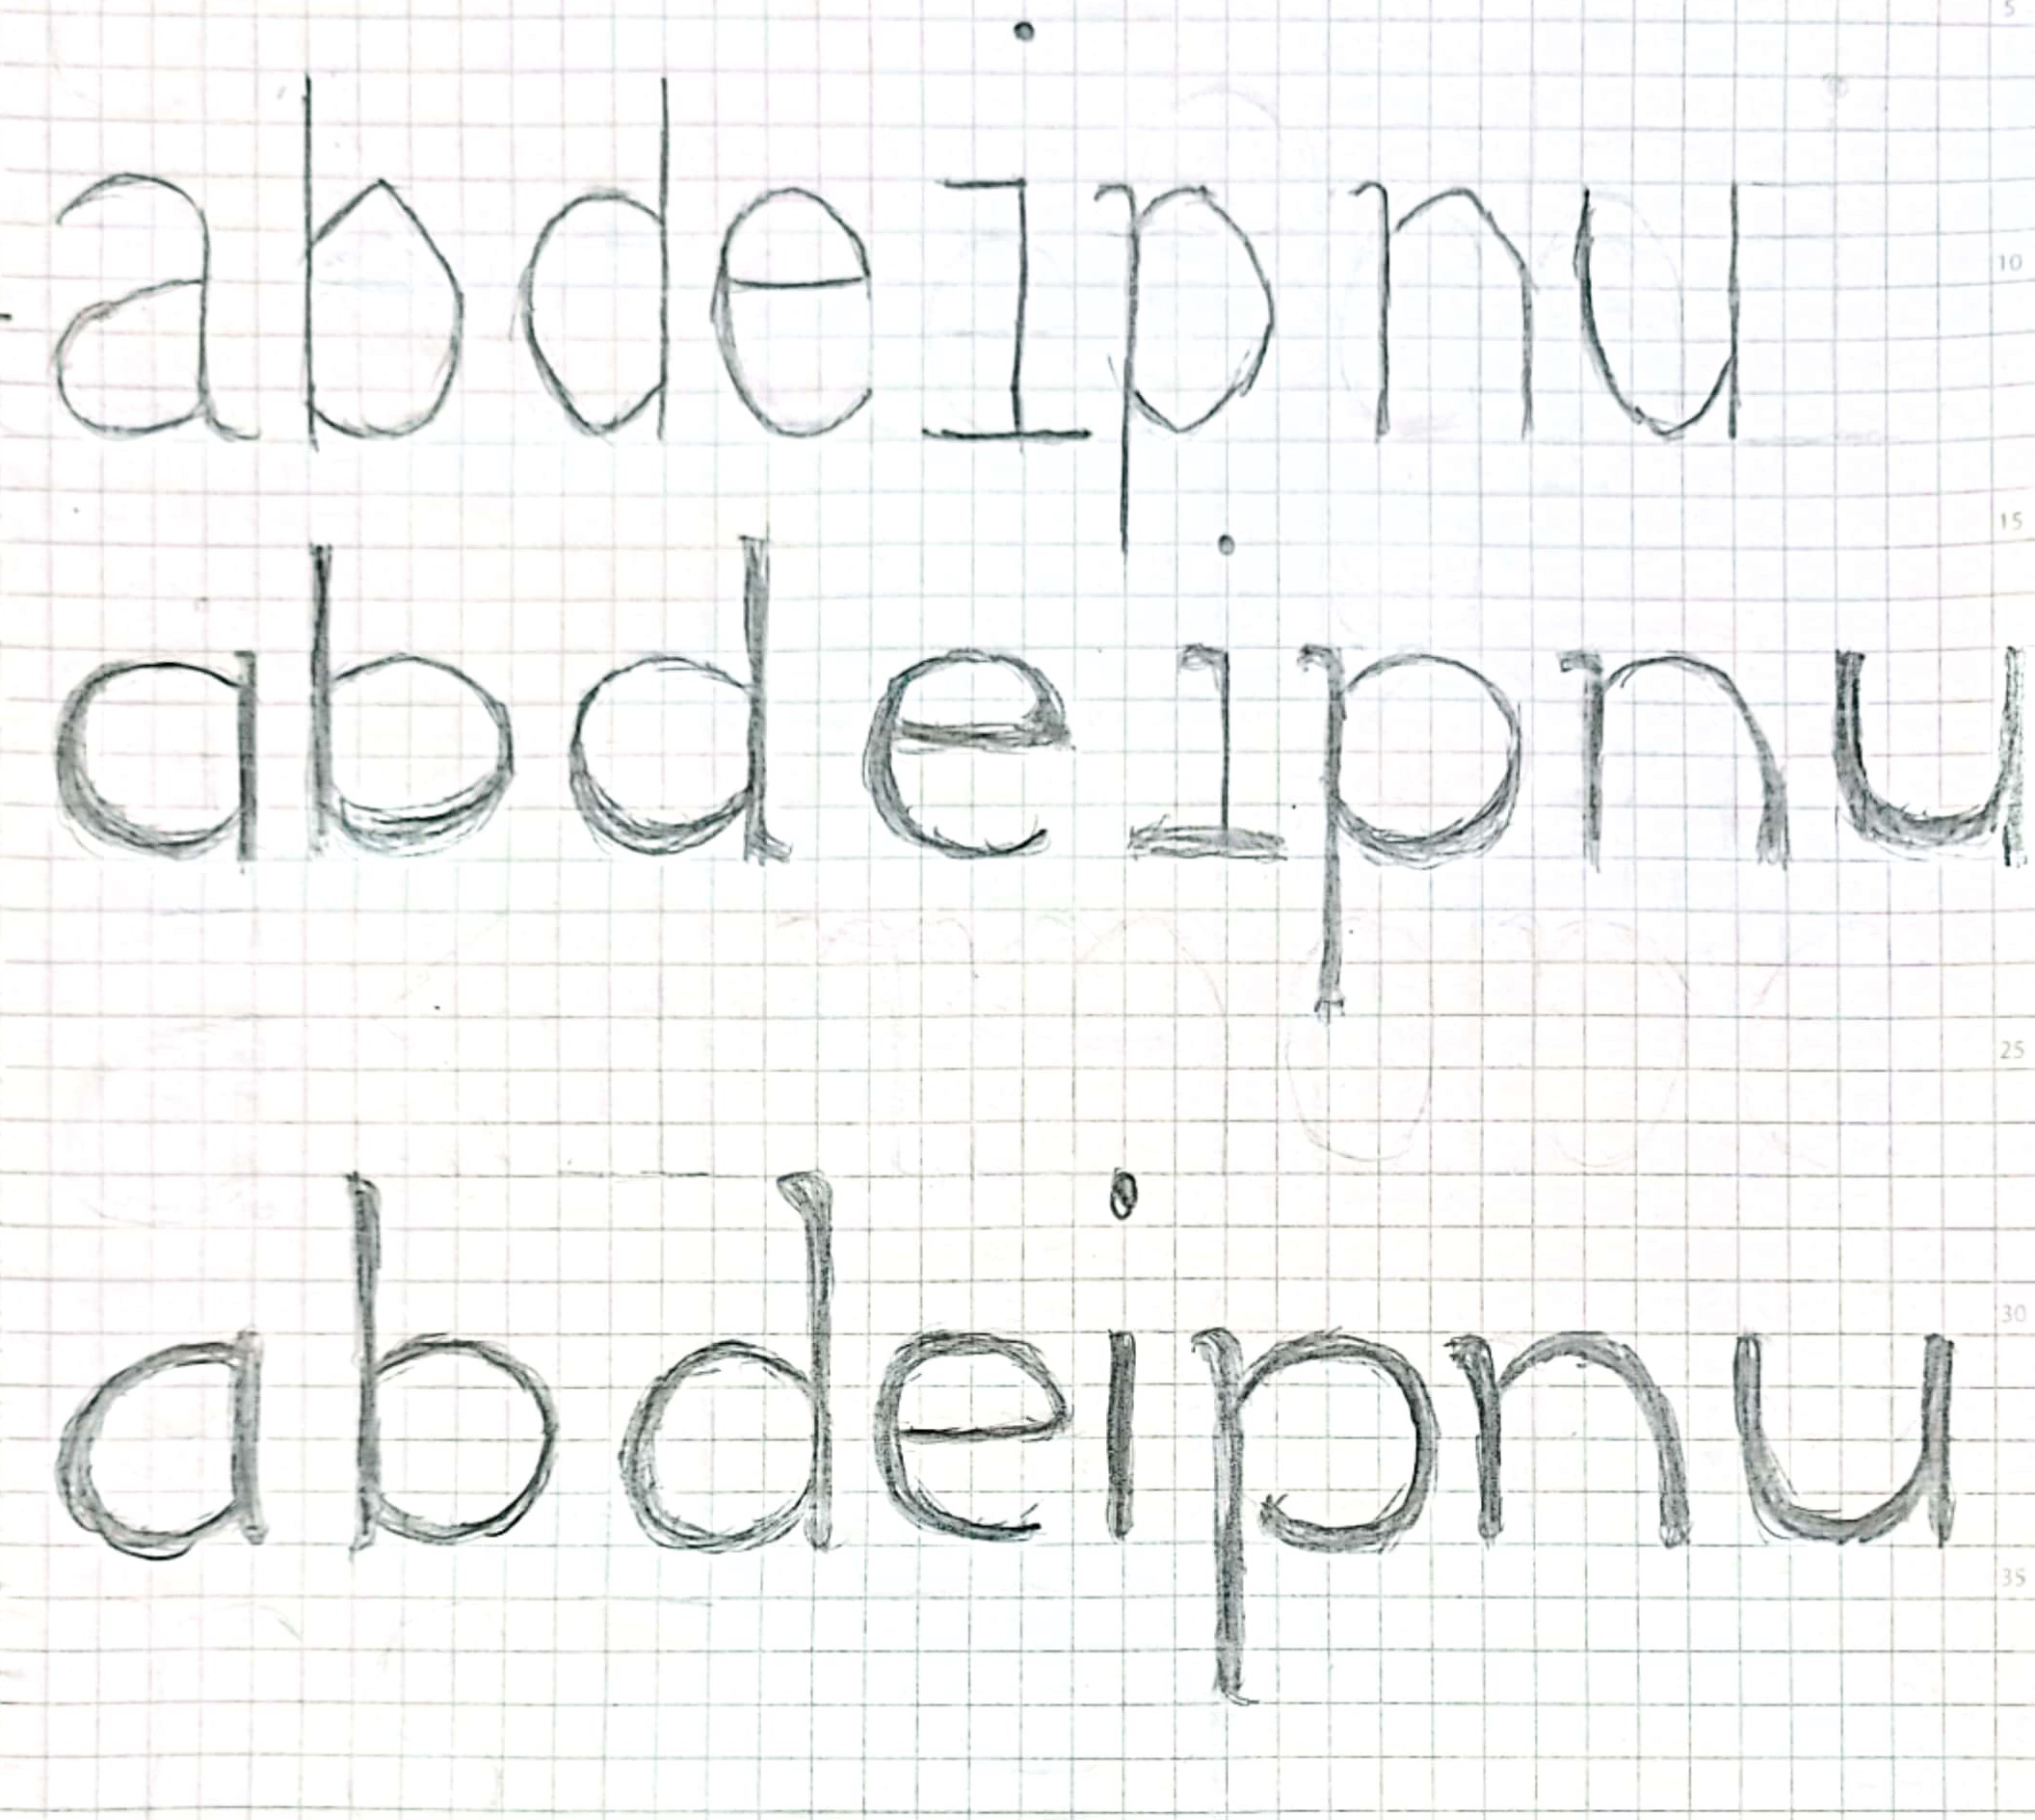 abdeipnu
abdeipnu
abdeipnu
5
10
15
25
30
35